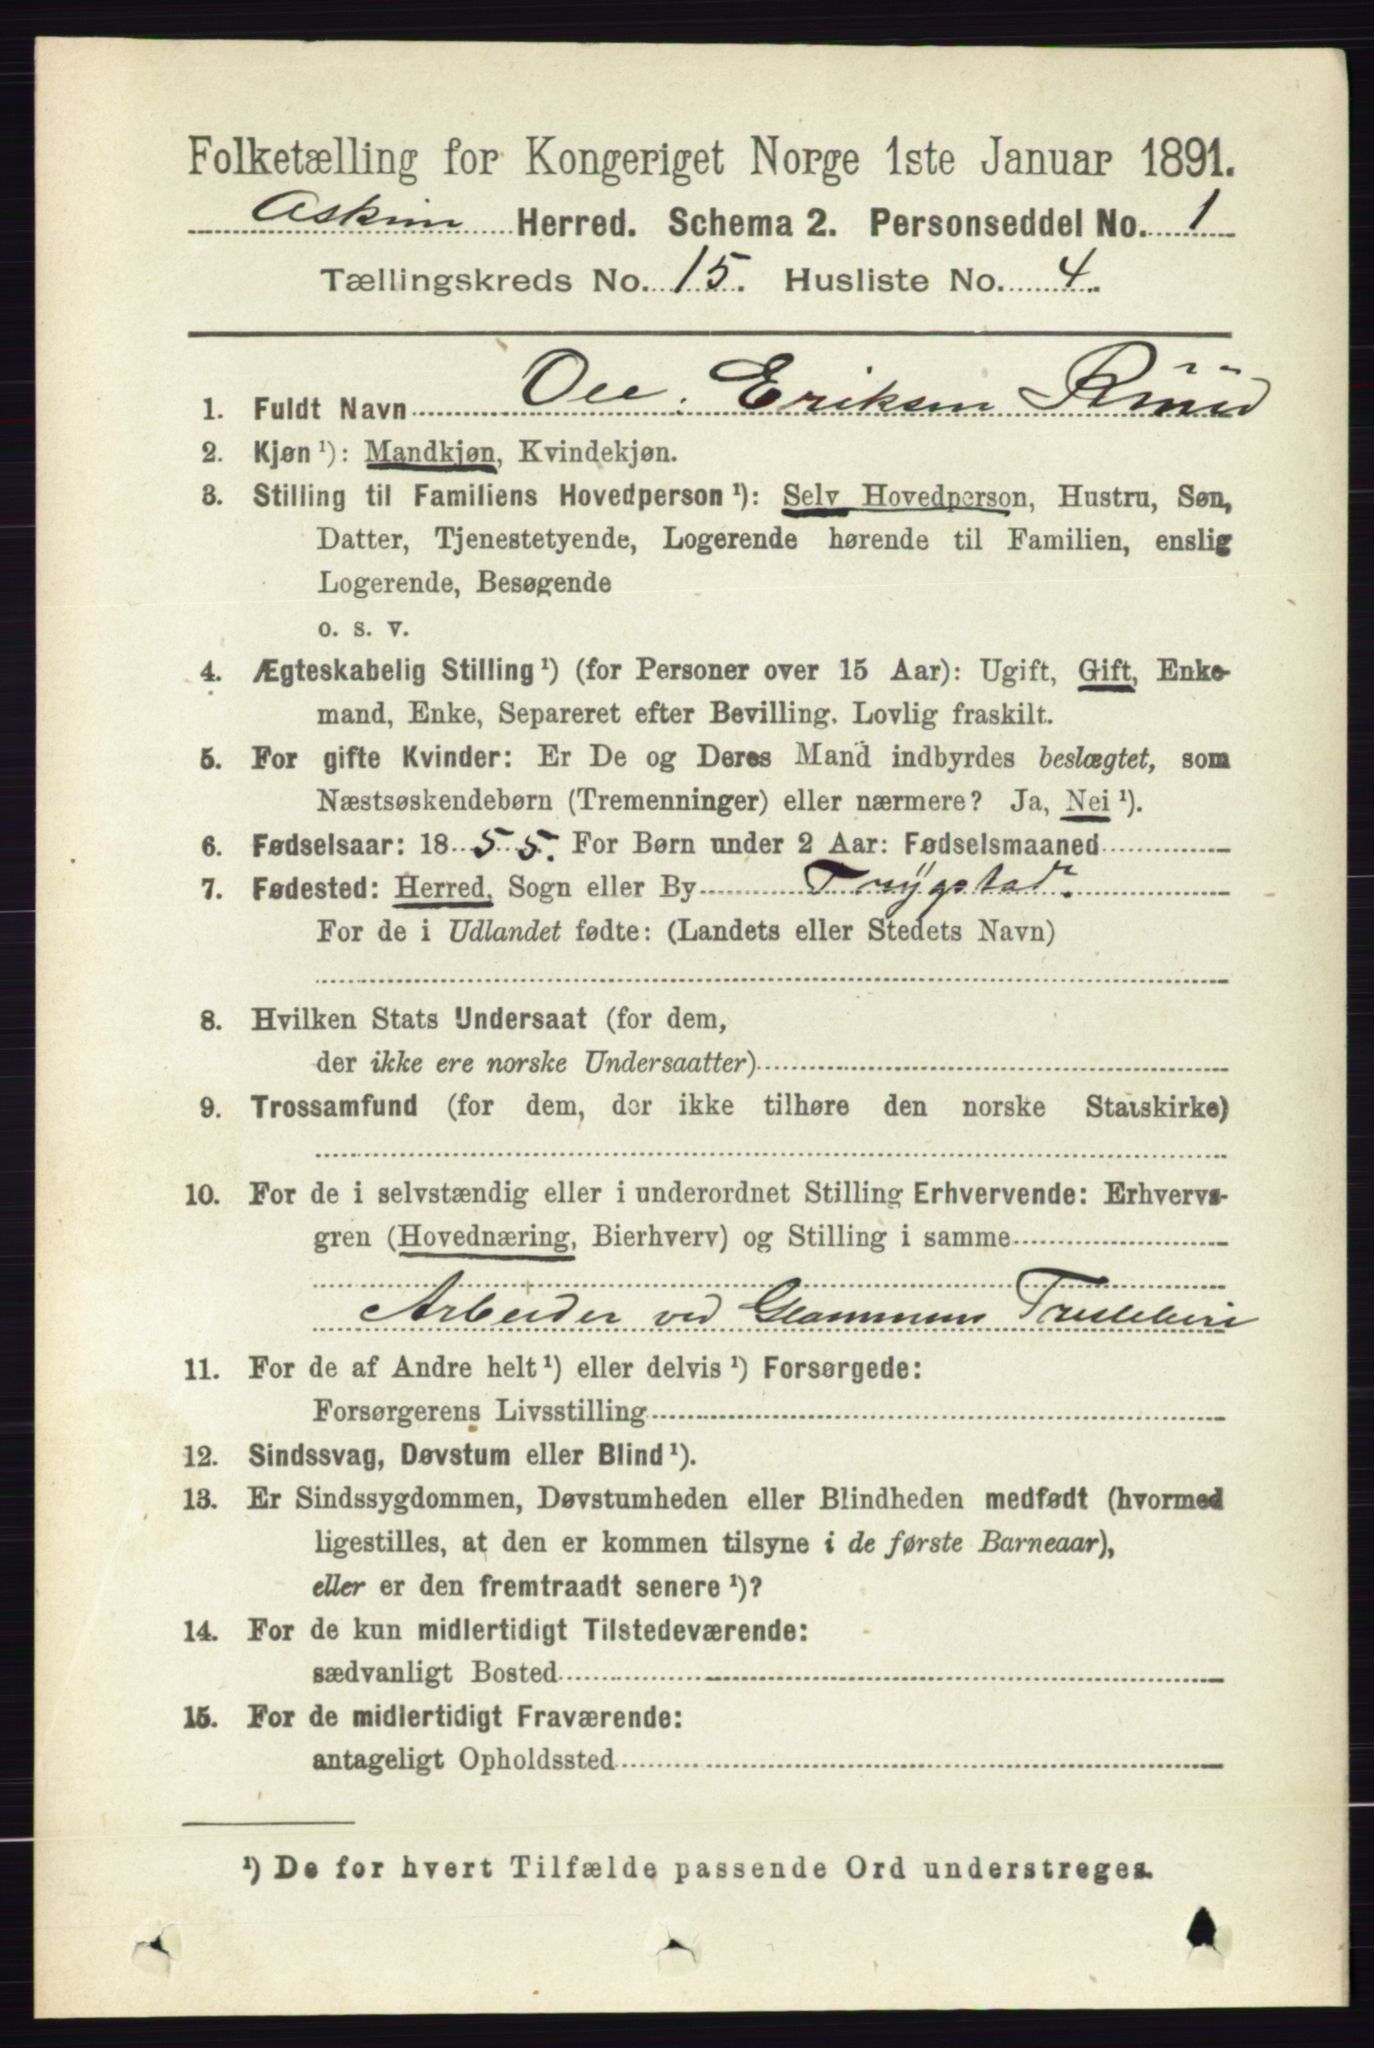 Folketælling for Kongeriget Norge 1ste Januar 1891.
Askim Herred. Schema 2. Personseddel No. 1
Tællingskreds No. 15. Husliste No. 4.
1. Fuldt Navn Ole Eriksen
2. Kjøn ¹): Mandkjøn, Kvindekjøn.
3. Stilling til Familiens Hovedperson ¹): Selv Hovedperson, Hustru, Søn,
Datter, Tjenestetyende, Logerende hørende til Familien, enslig
Logerende, Besøgende
o. s. v.
4. Ægteskabelig Stilling ¹) (for Personer over 15 Aar): Ugift, Gift, Enke-
mand, Enke, Separeret efter Bevilling. Lovlig fraskilt.
5. For gifte Kvinder: Er De og Deres Mand indbyrdes beslægtet, som
Næstsøskendebørn (Tremenninger) eller nærmere? Ja, Nei ¹).
6. Fødselsaar: 1855. For Børn under 2 Aar: Fødselsmaaned
7. Fødested: Herred, Sogn eller By Trygstad.
For de i Udlandet fødte: (Landets eller Stedets Navn)
8. Hvilken Stats Undersaat (for dem,
der ikke ere norske Undersaatter)
9. Trossamfund (for dem, der ikke tilhøre den norske Statskirke)
10. For de i selvstændig eller i underordnet Stilling Erhvervende: Erhvervs-
gren (Hovednæring, Bierhverv) og Stilling i samme
Arbeider ved Glommens Træsleberi
11. For de af Andre helt ¹) eller delvis ¹) Forsørgede:
Forsørgerens Livsstilling
12. Sindssvag, Døvstum eller Blind ¹).
13. Er Sindssygdommen, Døvstumheden eller Blindheden medfødt (hvormed
ligestilles, at den er kommen tilsyne i de første Barneaar),
eller er den fremtraadt senere ¹)?
14. For de kun midlertidigt Tilstedeværende:
sædvanligt Bosted
15. For de midlertidigt Fraværende:
antageligt Opholdssted
¹) De for hvert Tilfælde passende Ord understreges.